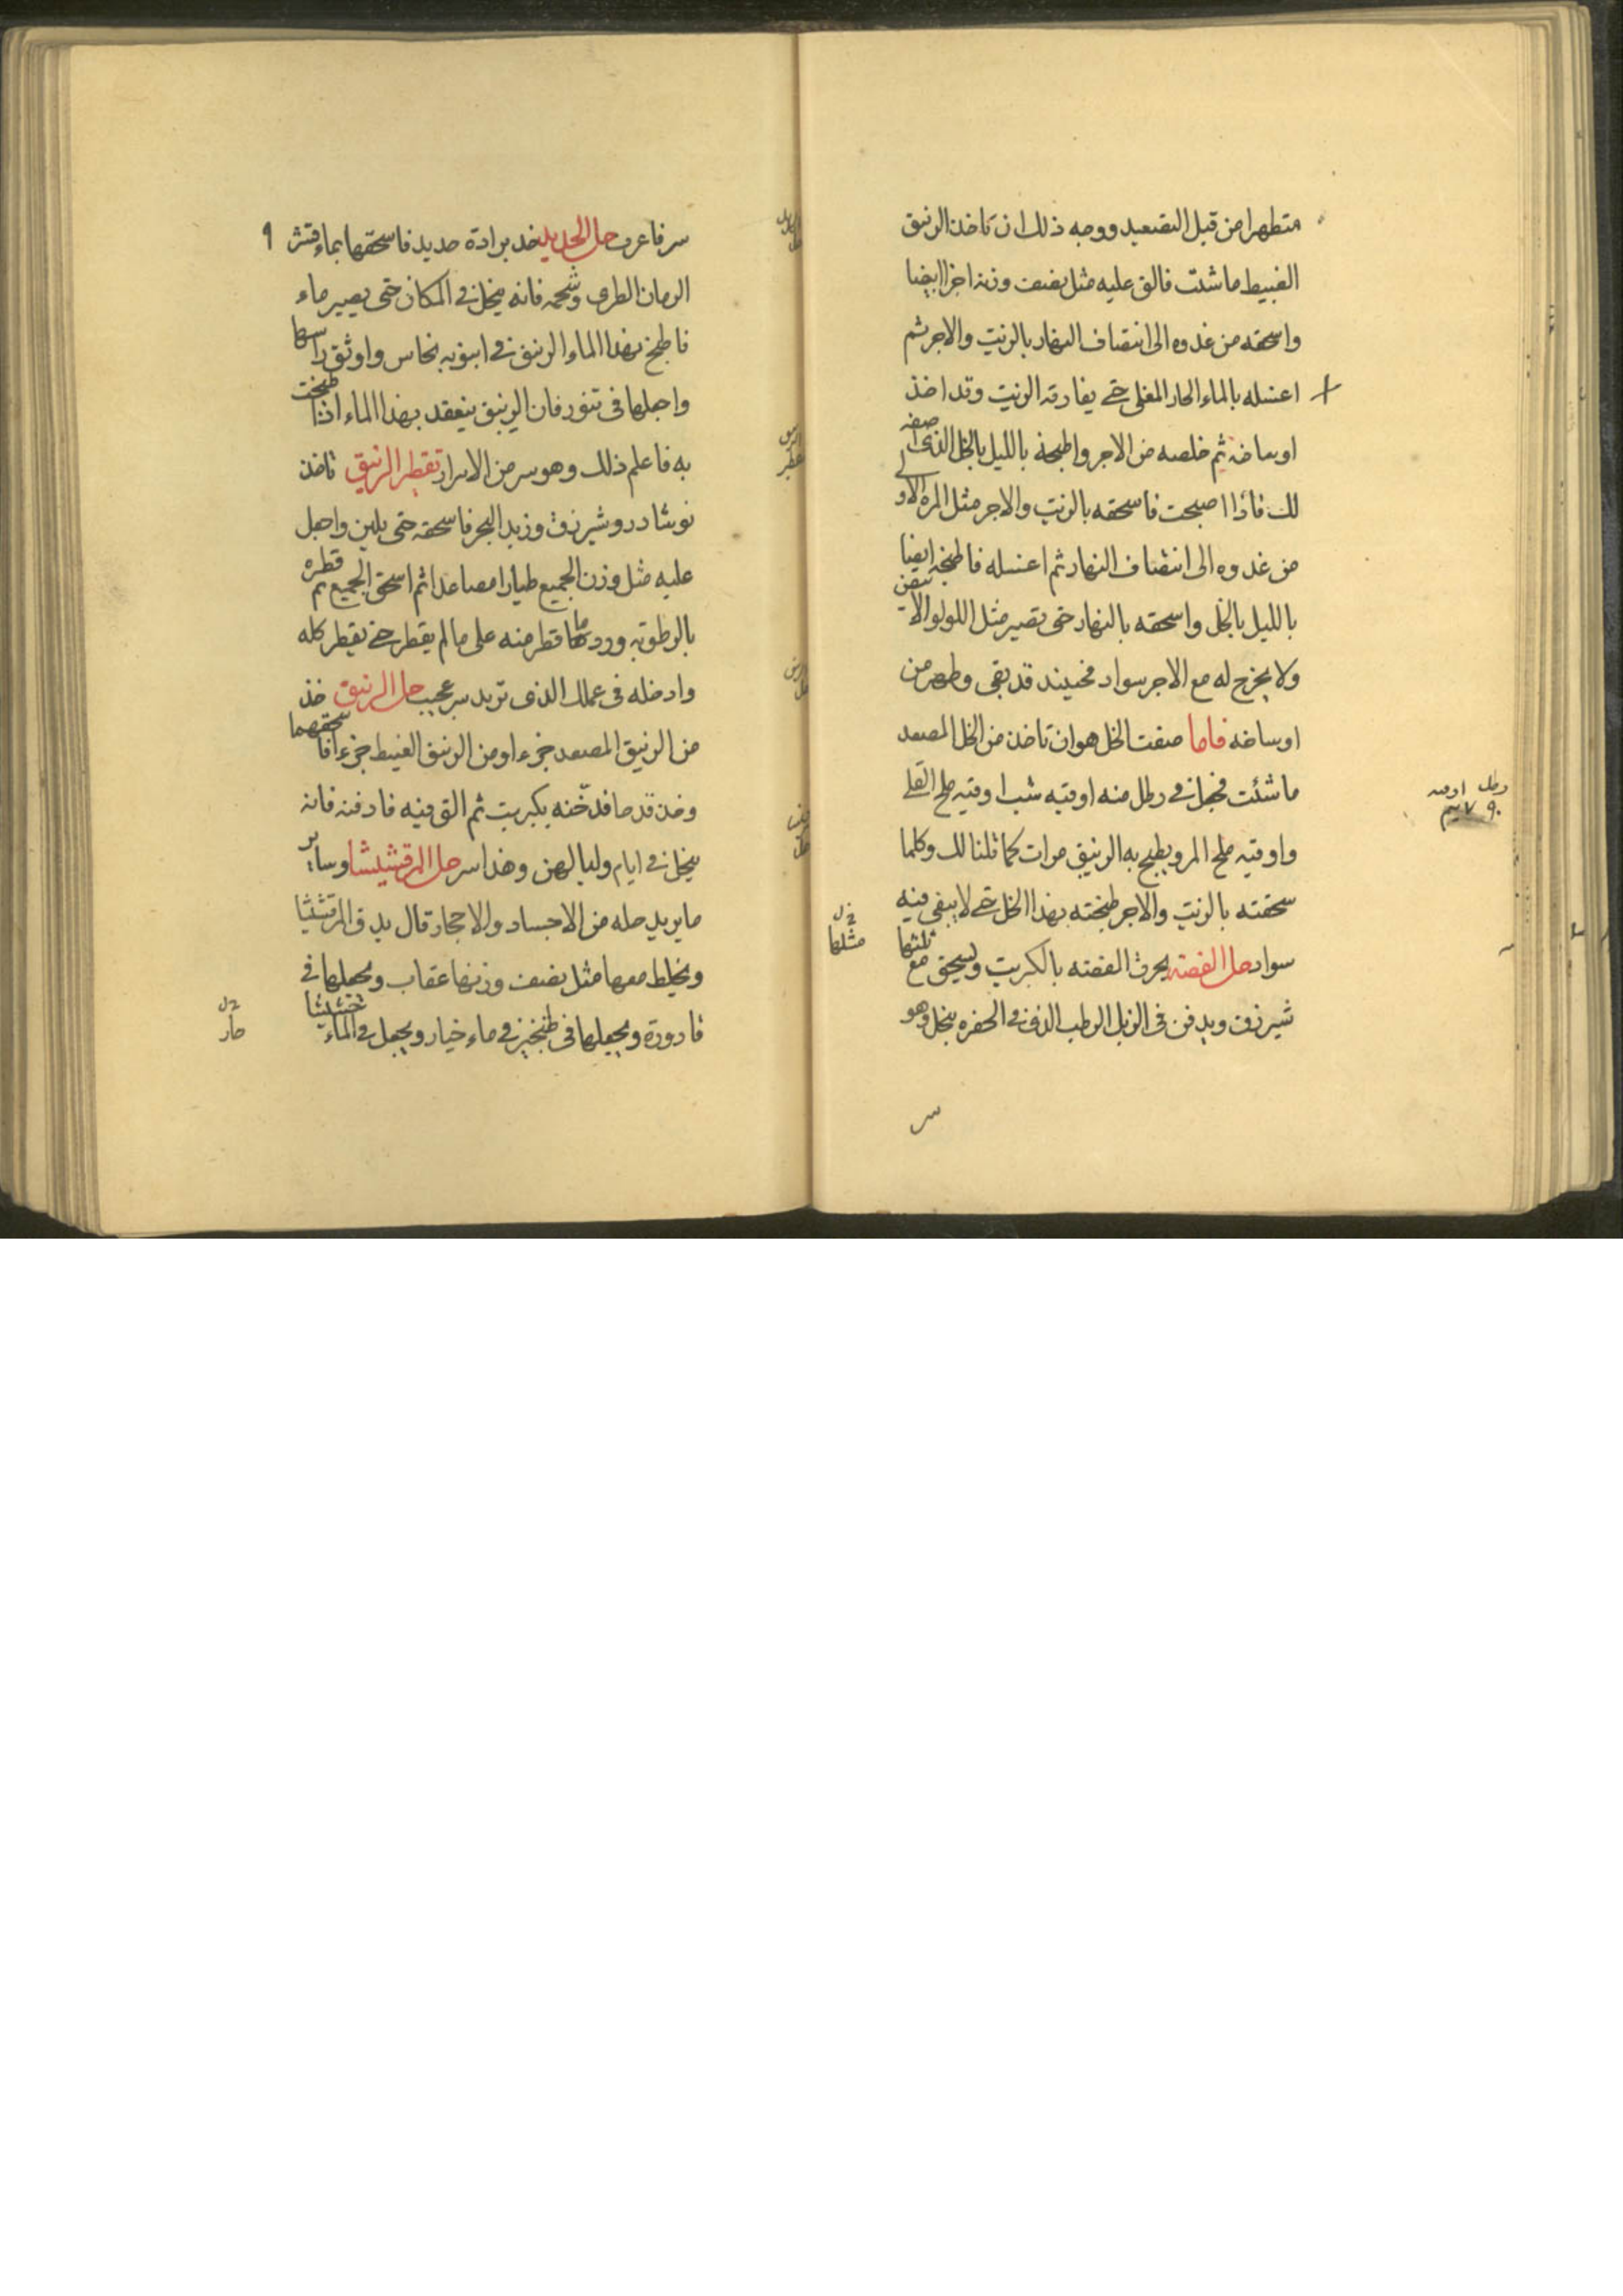 متطهرا من قبل التصعيد ووجه ذلك ان تاخذ الزنبق
الغبيط ما شئت فالق عليه مثل نصف وزنه اجرا ايضا
واسحقه من غدوه الى انتصاف النهار بالزيت والاجر ثم
اغسله بالماء الحار المغلى حتى يفارقه الزيت وقد اخذ
اوساخه ثم خلصه من الاجر واطبخه بالليل بالخل الذى اصفه
لك فاذا اصبحت فاسحقه بالزيت والاجر مثل المرة الاولى
من غدوه الى انتصاف النهار ثم اغسله فاطبخه ايضا
بالليل بالخل واسحقه بالنهار حتى يصير مثل اللولو الابيض
ولا يخرج له مع الاجر سواد فحينيذ قد نقى وطهر من
اوساخه فاما صفت الخل هو ان تاخذ من الخل المصعد
ما شئت فجعل فى رطل منه اوقيه شب اوقيه ملح القلى
واوقيه ملح المر ويطبخ به الزنبق مرات كما قلنا لك وكلما
سحقته بالزيت والاجر طبخته بهذا الخل حتى لا يبقى فيه
سواد حل الفضه يحرق الفضه بالكبريت ويسحق مع ثلثها
شيرزق ويدفن فى الزبل الرطب الدفى فى الحفره ينحل وهو
رطل اوقيه
مثلها
سر
سر فاعرف حل الحديد خذ برادة حديد فاسحقها بماء قشر
٩
الرمان الطرى وشحمه فانه ينحل فى المكان حتى يصير ماء
فاطبخ بهذا الماء الزنبق فى انبوبه نحاس واوثق راسها
واجعلها فى تنور فان الزنبق ينعقد بهذا الماء اذا طبخت
به فاعلم ذلك وهو سر من الاسرار تقطر الزنبق تاخذ
نوشادر وشيرزق وزبد البحر فاسحقه حتى يلين واجعل
عليه مثل وزن الجميع طيارا مصاعدا ثم اسحق الجميع ثم قطره
بالرطوبه ورد ما قطر منه على ما لم يقطر حتى يقطر كله
وادخله فى عملك الذى تريد سر عجيب حل الزنبق خذ
من الزنبق المصعد جزء او من الزنبق الغبيط جزء افاسحقهما
وخذ قدحا فدخنه بكبريت ثم الق فيه فادفنه فانه
ينحل فى ايام وليالهن وهذا سر حل المرقشيشا وساير
ما يريد حله من الاجساد والاحجار قال يدق المرقشيثا
ويخلط معها مثل نصف وزنها عقاب ويجعلها فى
قارورة ويجعلها فى طنجير فى ماء خيار ويجعل فى الماء
حار